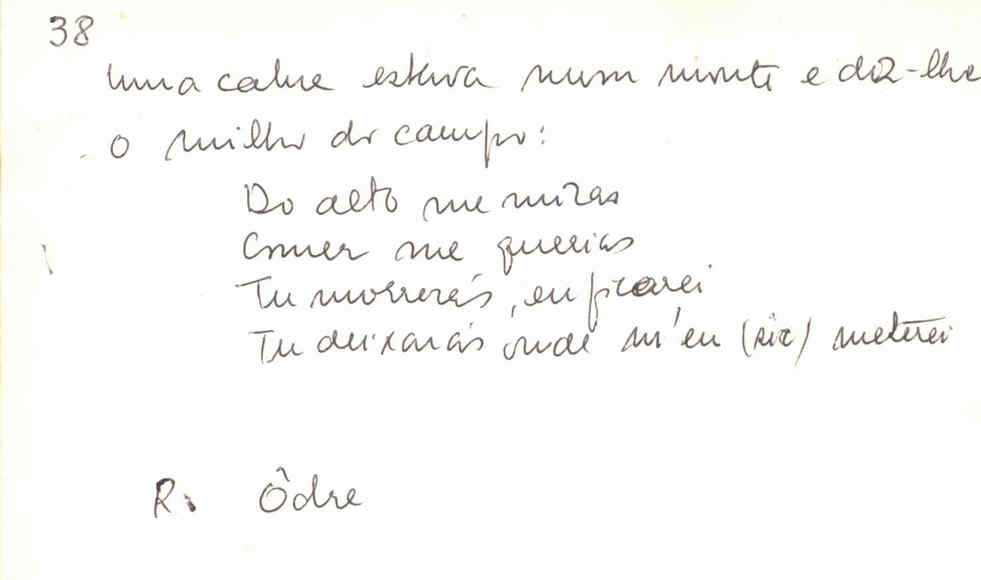 38
Uma cabre estava num monte e diz-lhe
o milho do campo:
Do alto me miras
Comer me querias
Tu morrerás, eu ficarei
Tu deixarás onde m'eu (sic) meterei
R. Ôdre